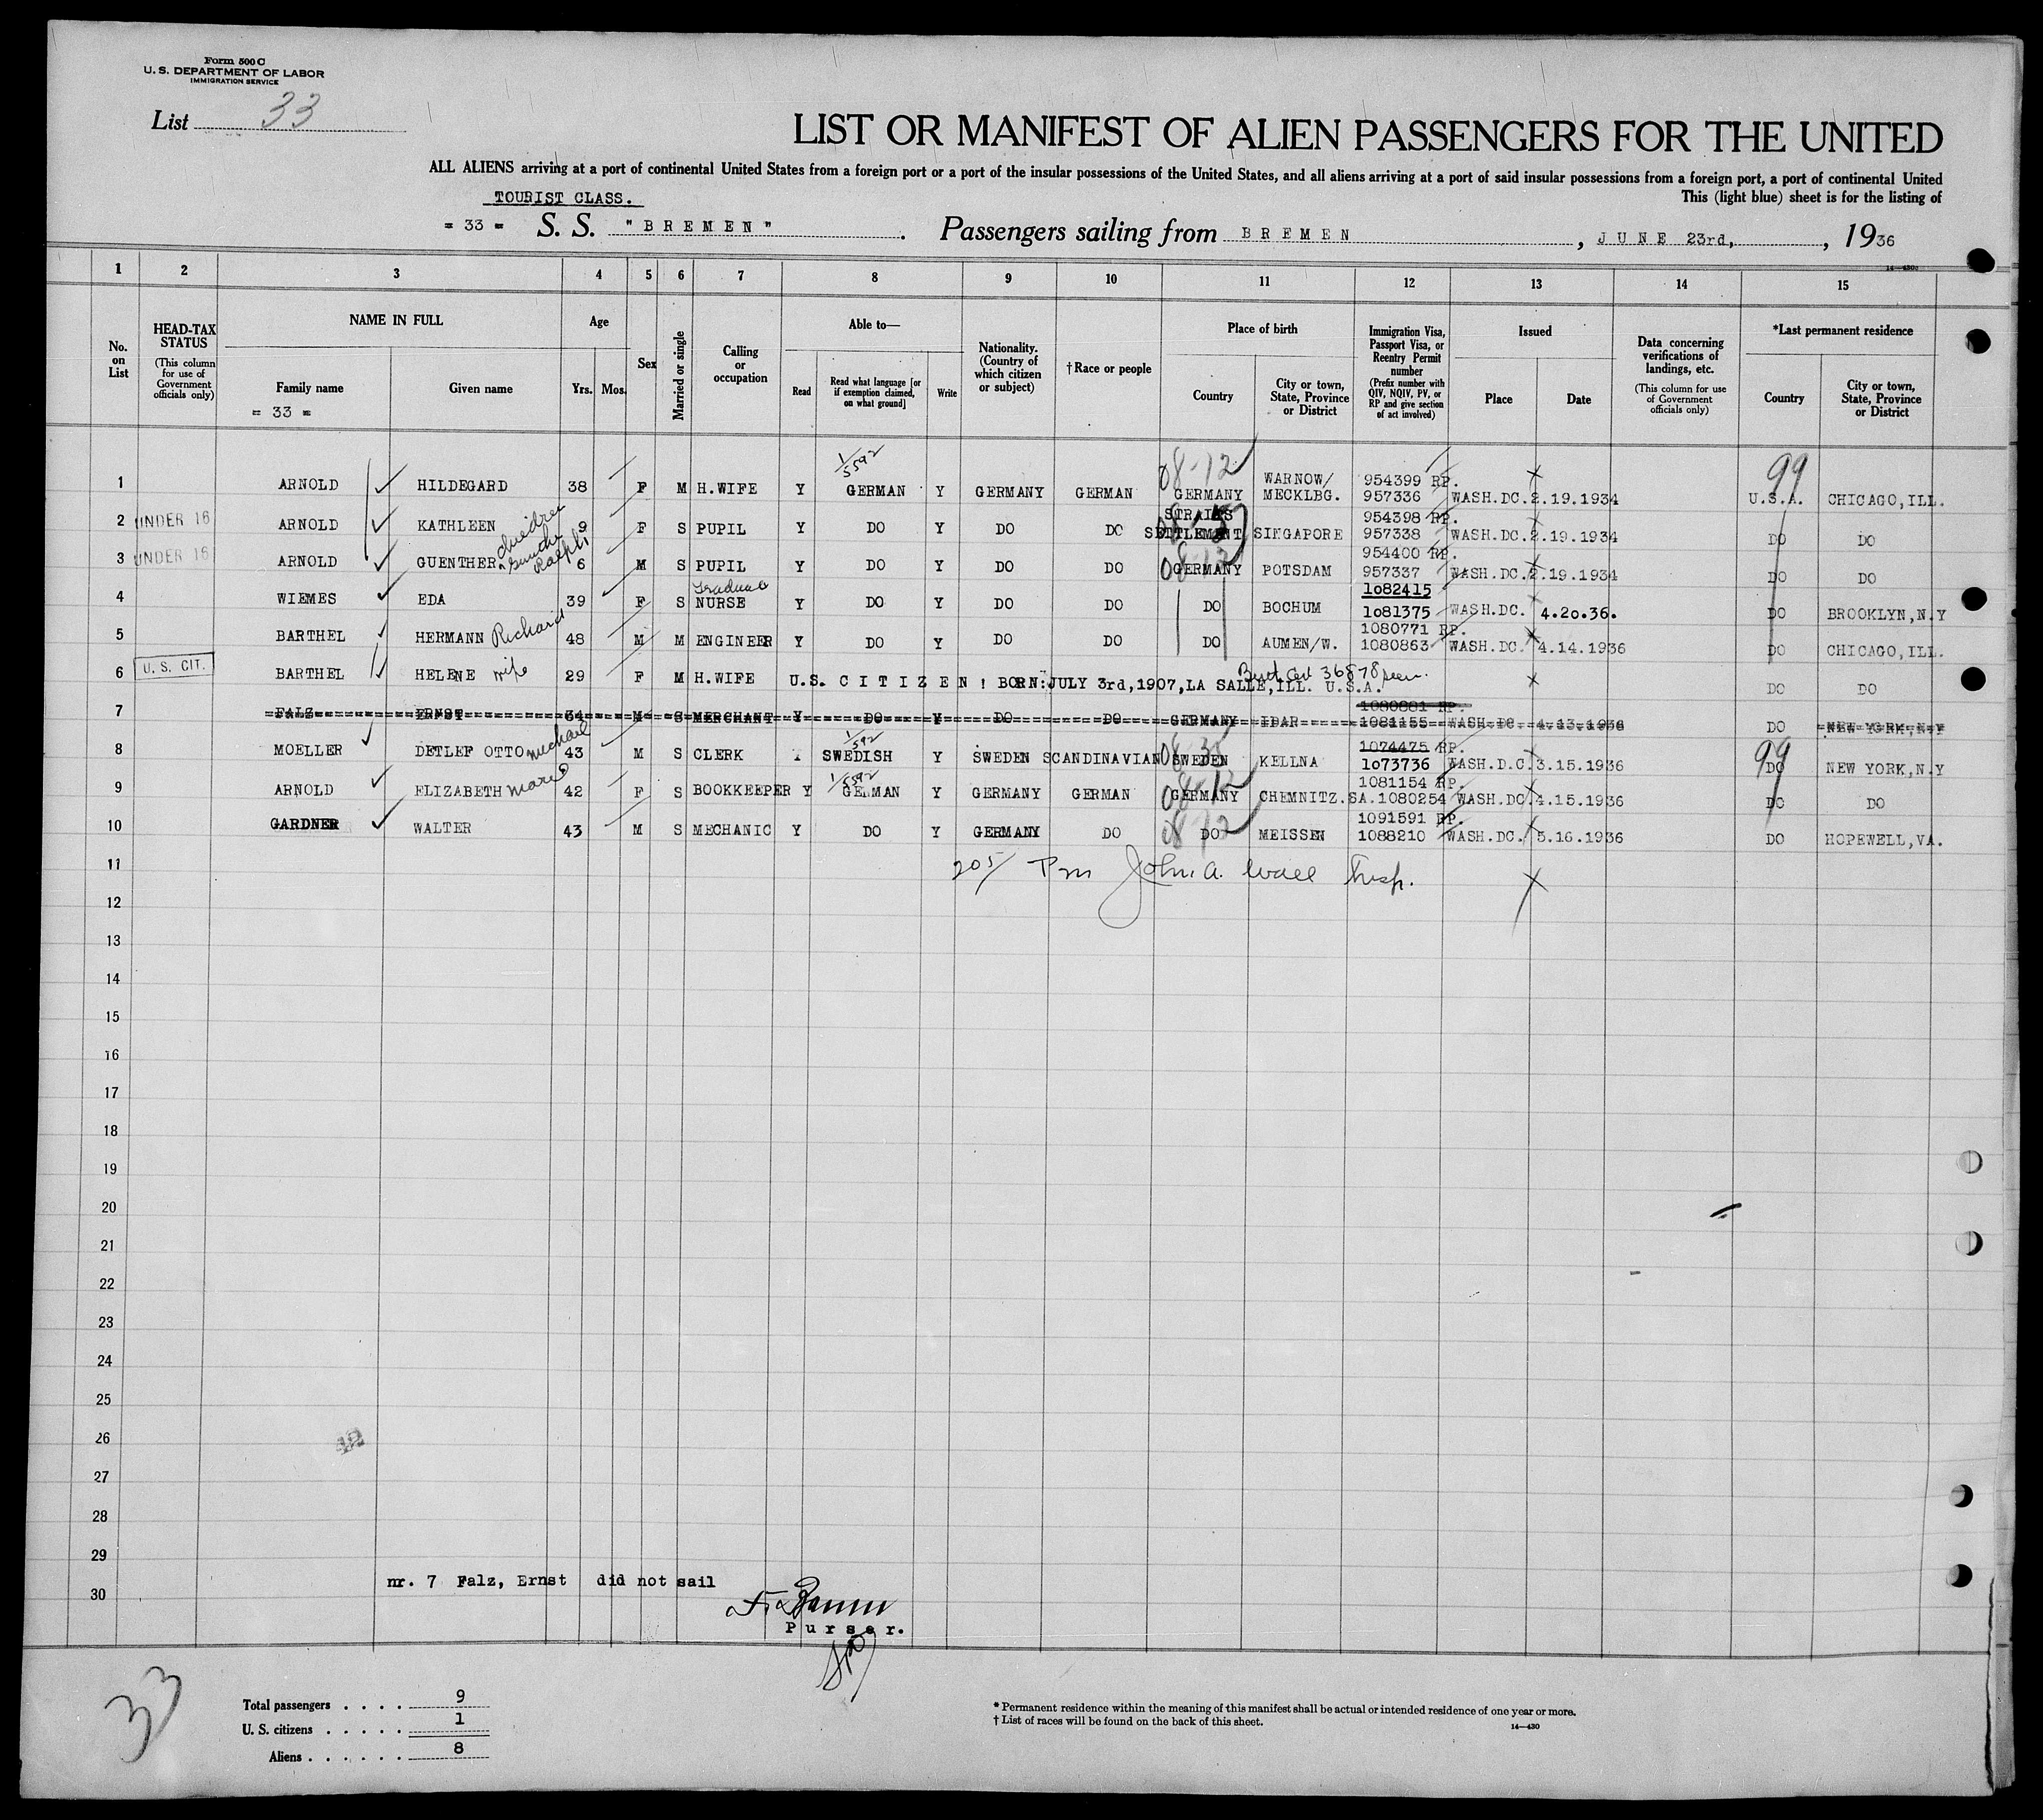 Form 500 C
U. S. DEPARTMENT OF LABOR
IMMIGRATION SERVICE
List 33
LIST OR MANIFEST OF ALIEN PASSENGERS FOR THE UNITED
ALL ALIENS arriving at a port of continental United States from a foreign port or a port of the insular possessions of the United States, and all aliens arriving at a port of said insular possessions from a foreign port, a port of continental United
TOURIST CLASS. This (light blue) sheet is for the listing of
= 33 = S. S. "BREMEN" . Passengers sailing from BREMEN , JUNE 23rd, , 1936
14—430
1 2 3 4 5 6 7 8 9 10 11 12 13 14 15
No. on List
HEAD-TAX STATUS (This column for use of Government officials only)
NAME IN FULL
Family name Given name
= 33 =
Age
Yrs. Mos.
Sex
Married or single
Calling or occupation
Able to—
Read Read what language [or if exemption claimed, on what ground] Write
Nationality. (Country of which citizen or subject)
† Race or people
Place of birth
Country City or town, State, Province or District
Immigration Visa, Passport Visa, or Reentry Permit number (Prefix number with QIV, NQIV, PV, or RP and give section of act involved)
Issued
Place Date
Data concerning verifications of landings, etc. (This column for use of Government officials only)
*Last permanent residence
Country City or town, State, Province or District
1 ARNOLD HILDEGARD 38 F M H.WIFE Y GERMAN Y GERMANY GERMAN 08-12 GERMANY WARNOW/ MECKLBG. 954399 RP. 957336 WASH.DC. 2.19.1934 99 U.S.A. CHICAGO,ILL.
2 UNDER 16 ARNOLD KATHLEEN 9 F S PUPIL Y DO Y DO DO STRAITS SETTLEMENT SINGAPORE 954398 RP. 957338 WASH.DC. 2.19.1934 DO DO
3 UNDER 16 ARNOLD GUENTHER Ralph 6 M S PUPIL Y DO Y DO DO 08-12 GERMANY POTSDAM 954400 RP. 957337 WASH.DC. 2.19.1934 DO DO
4 WIEMES EDA 39 F S Graduate NURSE Y DO Y DO DO DO BOCHUM 1082415 1081375 WASH.DC. 4.20.36. DO BROOKLYN,N.Y
5 BARTHEL HERMANN Richard 48 M M ENGINEER Y DO Y DO DO DO AUMEN/W. 1080771 RP. 1080863 WASH.DC. 4.14.1936 DO CHICAGO,ILL.
6 U. S. CIT. BARTHEL HELENE wife 29 F M H.WIFE U.S. CITIZEN! BORN:JULY 3rd,1907,LA SALLE,ILL. U.S.A. Birth Cert 36878 seen. DO DO
7 FALZ ERNST 34 M S MERCHANT Y DO Y DO DO GERMANY IDAR 1080881 RP. 1081155 WASH.DC. 4.13.1936 DO NEW YORK,N.Y
8 MOELLER DETLEF OTTO Michael 43 M S CLERK Y SWEDISH Y SWEDEN SCANDINAVIAN SWEDEN KELLNA 1074475 RP. 1073736 WASH.D.C. 3.15.1936 99 DO NEW YORK,N.Y
9 ARNOLD ELIZABETH Marie 42 F S BOOKKEEPER Y GERMAN Y GERMANY GERMAN 08-12 GERMANY CHEMNITZ.SA. 1081154 RP. 1080254 WASH.DC. 4.15.1936 DO DO
10 GARDNER WALTER 43 M S MECHANIC Y DO Y GERMANY DO 08-12 DO MEISSEN 1091591 RP. 1088210 WASH.DC. 5.16.1936 DO HOPEWELL,VA.
11 205/ Pm John A. Insp.
12
13
14
15
16
17
18
19
20
21
22
23
24
25
26
27
28
29
30
nr. 7 Falz, Ernst did not sail
Purser.
33
Total passengers . . . . 9
U. S. citizens . . . . . 1
Aliens . . . . . . 8
* Permanent residence within the meaning of this manifest shall be actual or intended residence of one year or more.
† List of races will be found on the back of this sheet.
14—430